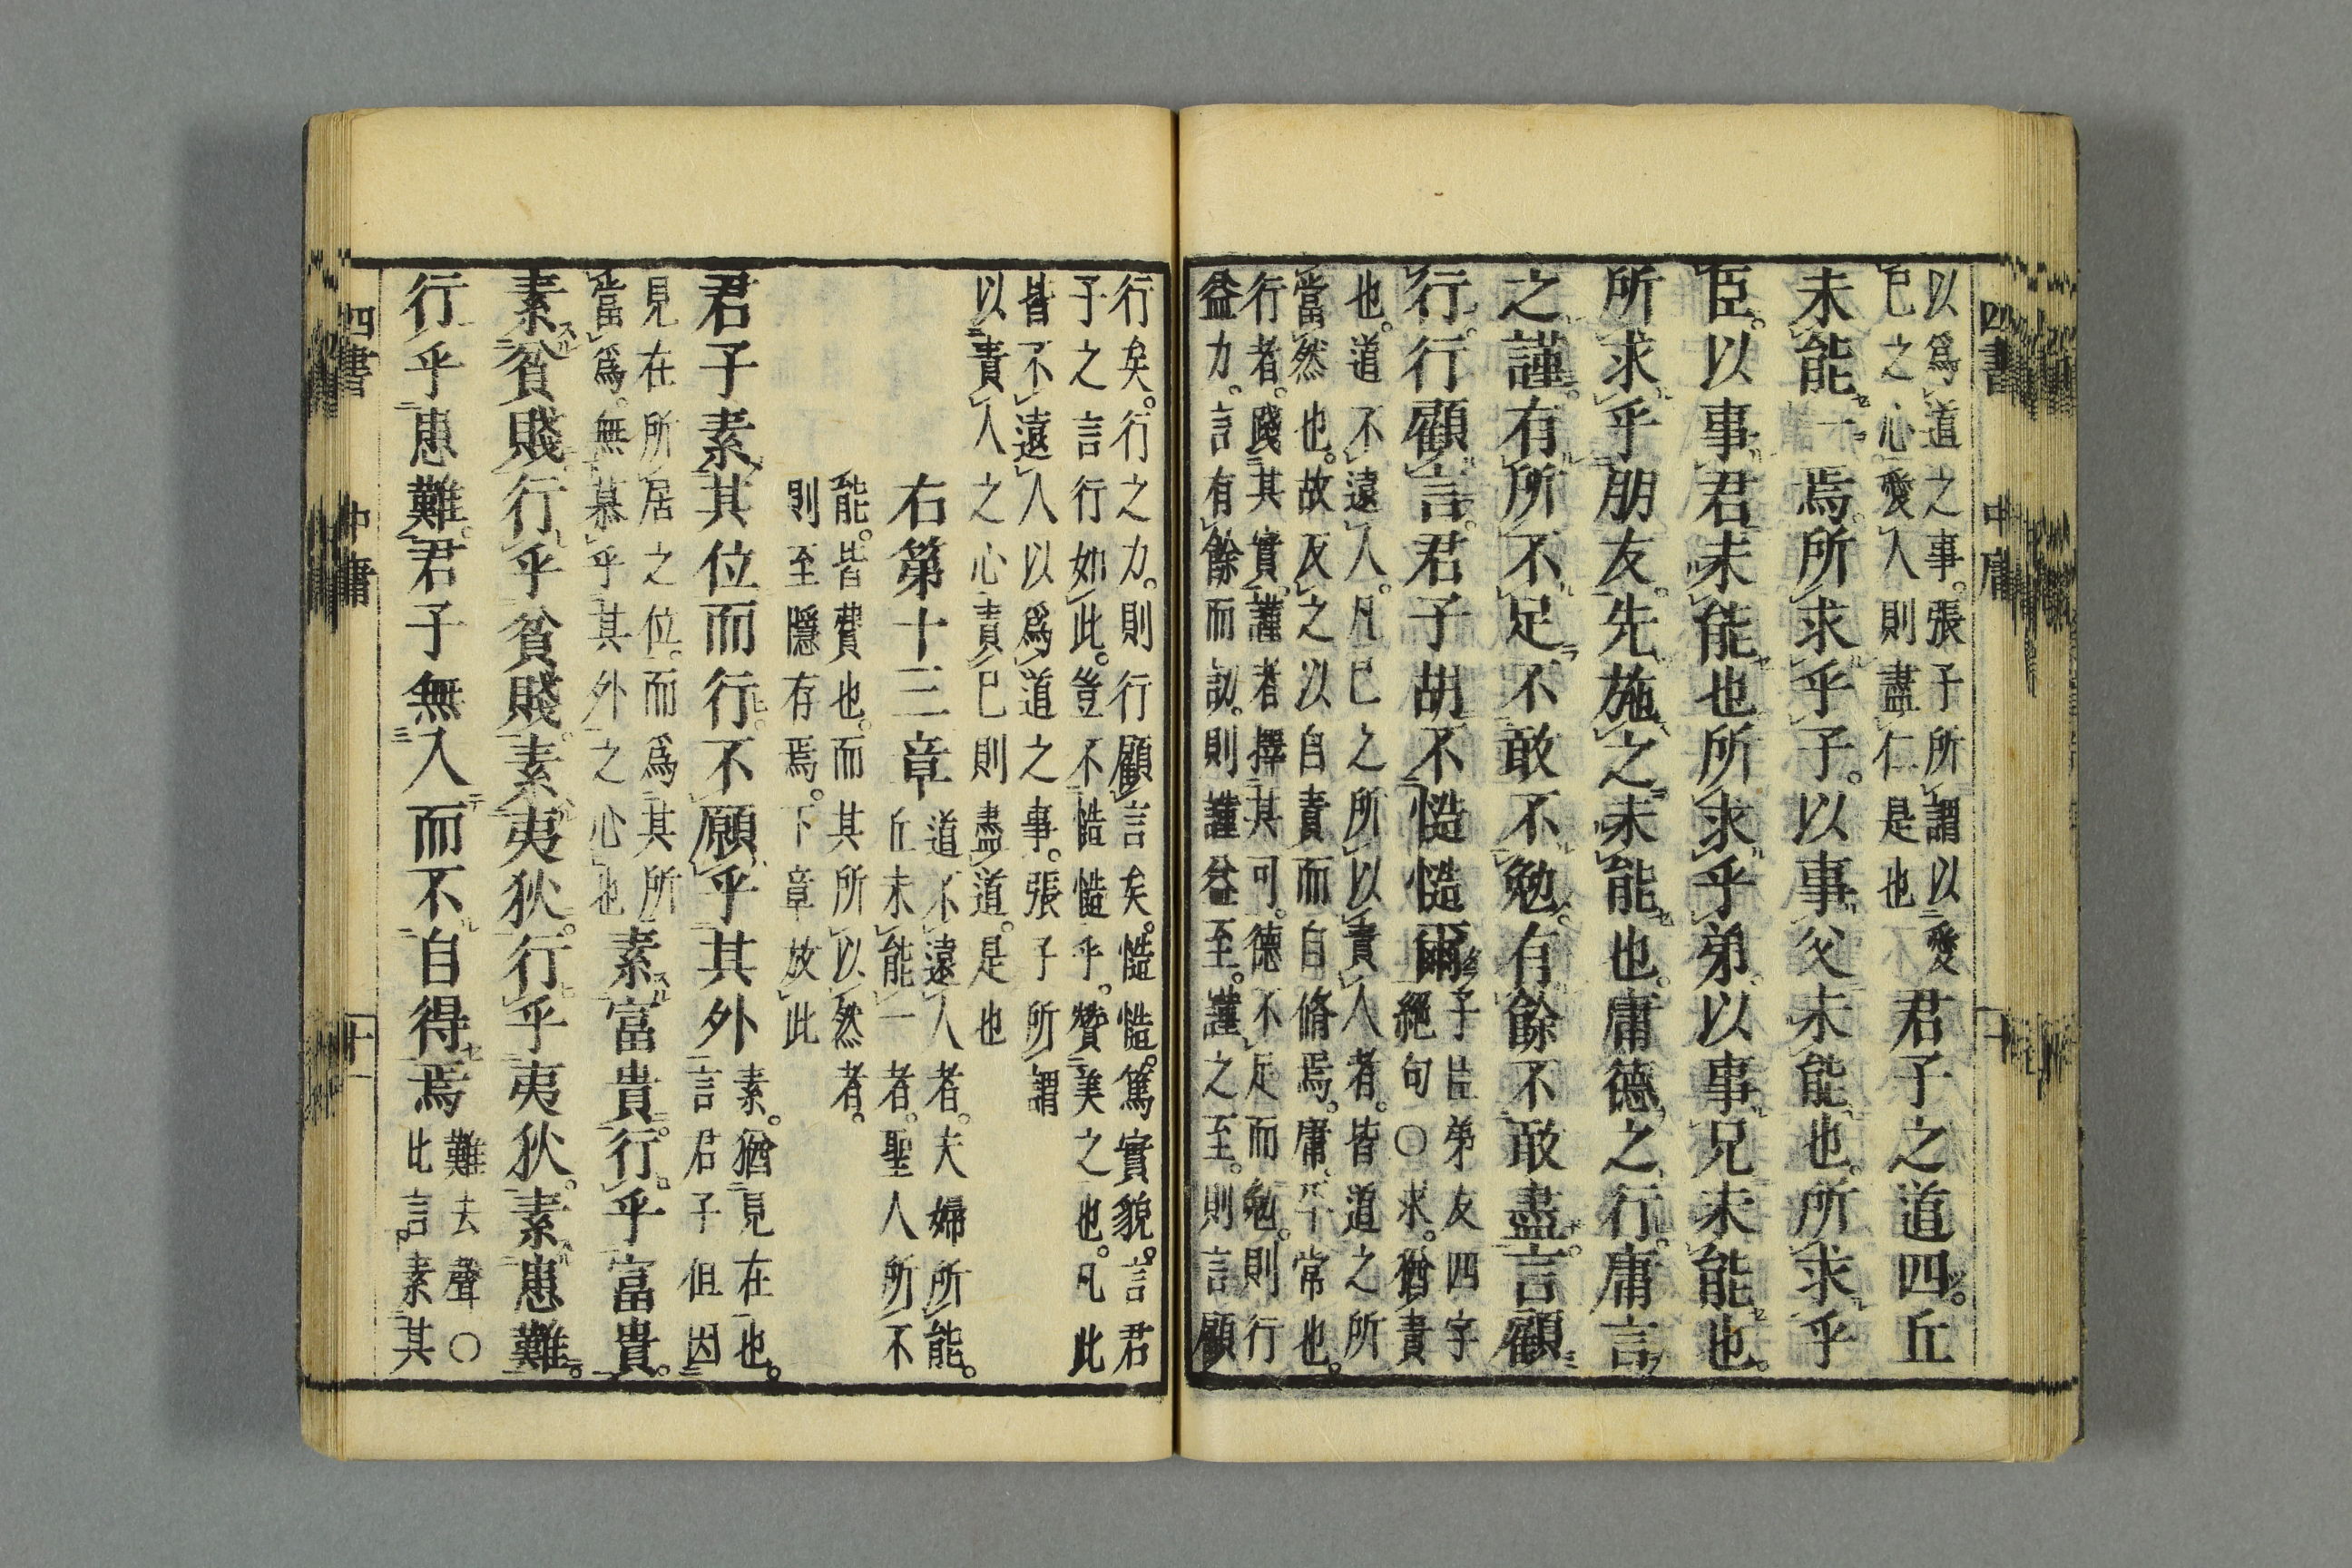 四書 中庸 十
以爲道之事。張子所謂以愛
已之心愛人則盡仁是也
君子之道四。丘
未能一焉。所求乎子。以事父未能也。所求乎
臣。以事君未能也所求乎弟。以事兄未能也。
所求乎朋友。先施之未能也。庸德之行。庸言
之謹。有所不足不敢不勉。有餘不敢盡。言顧
行。行顧言。君子胡不慥慥爾
子臣弟友四字
絕句○求。猶責
也。道不遠人。凡已之所以責人者。皆道之所
當然也。故反之以自責而自脩焉。庸。平常也。
行者。踐其實。謹者擇其可。德不足而勉。則行
益力。言有餘而訒。則謹益至。謹之至。則言顧
行矣。行之力。則行顧言矣。慥慥。篤實貌。言君
子之言行如此。豈不慥慥乎。贊美之也。凡此
皆不遠人以爲道之事。張子所謂
以責人之心責已則盡道。是也
右第十三章
道不遠人者。夫婦所能。
丘未能一者。聖人所不
能。皆費也。而其所以然者。
則至隱存焉。下章放此
君子素其位而行。不願乎其外
素。猶見在也。
言君子但因
見在所居之位。而爲其所
當爲。無慕乎其外之心也
素富貴。行。乎富貴。
素貧賤行乎貧賤。素夷狄。行乎夷狄。素患難。
行乎患難。君子無入而不自得焉
難去聲○
此言。素其
四書 中庸 十一